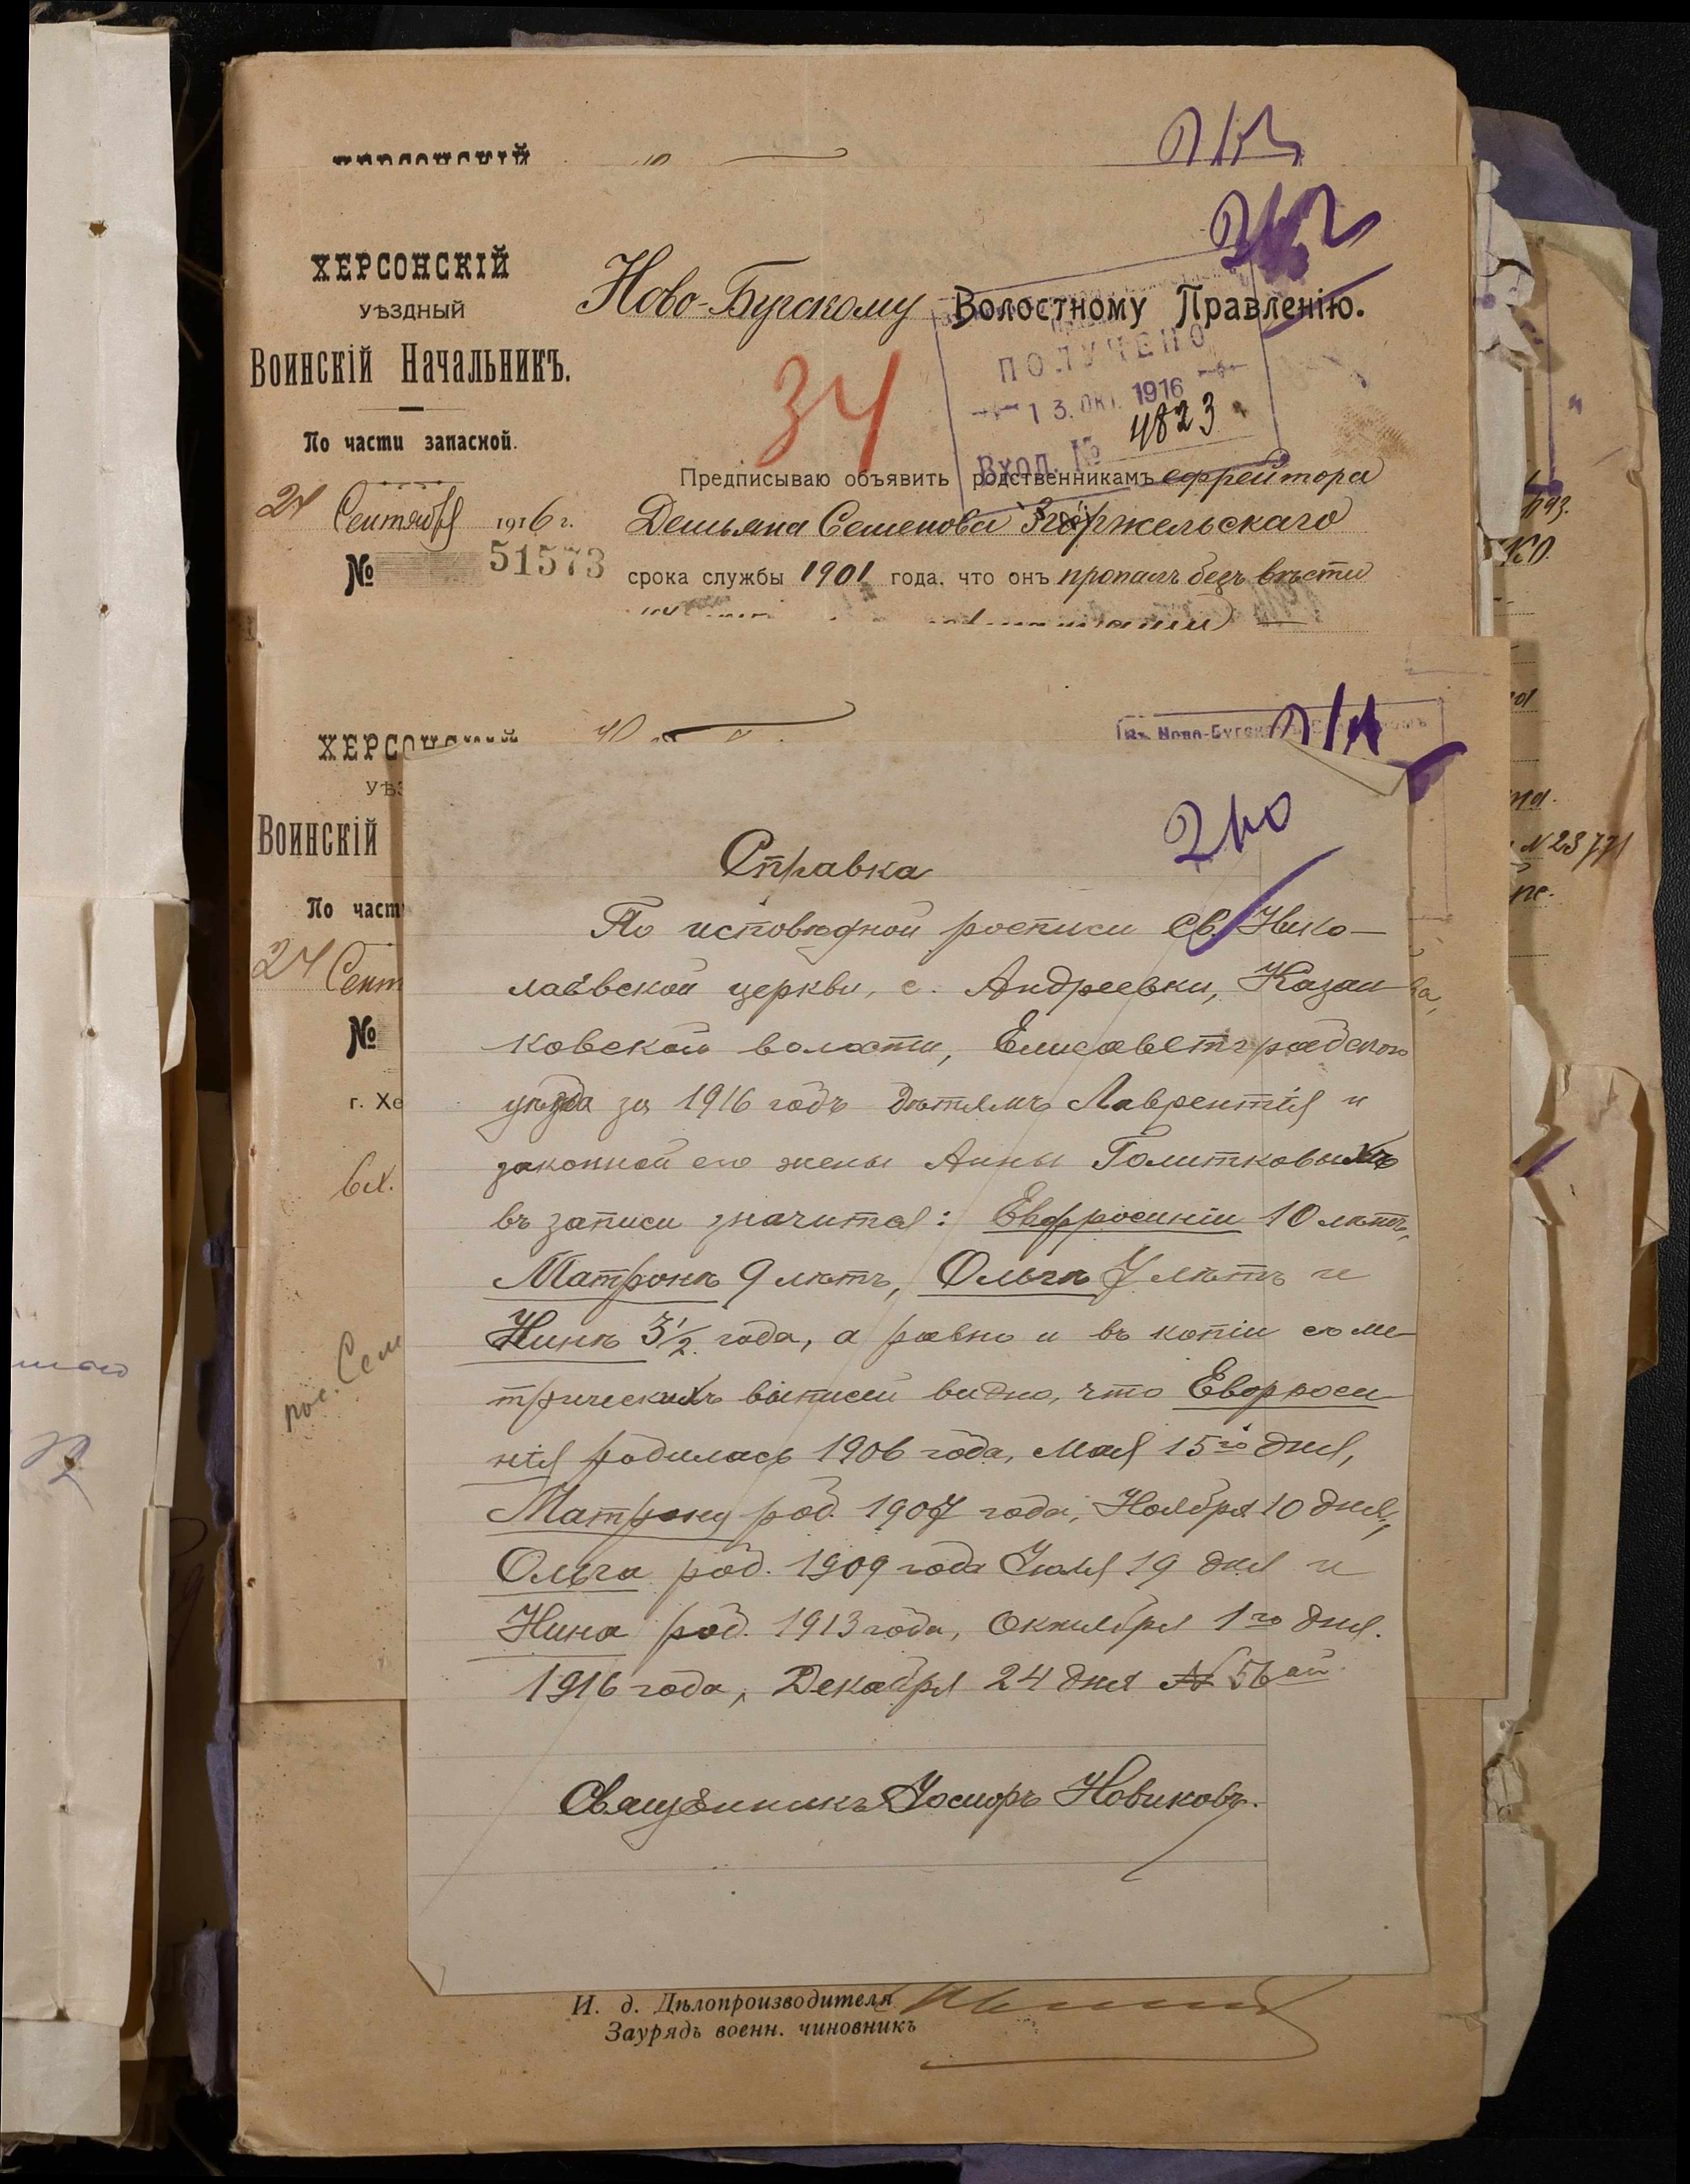 ХЕРСОНСКІЙ
212
ХЕРСОНСКІЙ
УѢЗДНЫЙ
ВОИНСКІЙ НАЧАЛЬНИКЪ.
По части запасной.
24 Сентября 1916 г.
№ 51573
Ново-Бугскому Волостному Правленію.
34
ПОЛУЧЕНО
13. ОКТ. 1916
Вход. № 4823
Предписываю объявить родственникамъ ефрейтора
Демьяна Семенова Згоржельскаго
срока службы 1901 года, что онъ пропалъ безъ вѣсти
ХЕРСОНСКІЙ
УѢЗ
ВОИНСКІЙ
По част
24 Сент
№
г. Хе
вх.
211
Ново-Бугск
210
Справка
По исповѣдной росписи Св. Нико-
лаевской церкви, с. Андреевки, Казан-
ковской волости, Елисаветградского
уѣзда за 1916 годъ дѣтямъ Лаврентія и
законной его жены Анны Голитковыхъ
въ записи значится: Евфросиніи 10 лѣтъ,
Матронѣ 9 лѣтъ, Ольгѣ 7 лѣтъ и
Нинѣ 3½ года, а равно и въ копіи съ ме-
трическихъ выписей видно, что Евфроси-
нія родилась 1906 года, Мая 15го дня,
Матрона род. 1907 года, Ноября 10 дня,
Ольга род. 1909 года Іюля 19 дня и
Нина род. 1913 года, Октября 1го дня.
1916 года, Декабря 24 дня № 56ый
Священникъ Іосифъ Новиковъ.
И. д. Дѣлопроизводителя
Заурядъ военн. чиновникъ
№23771